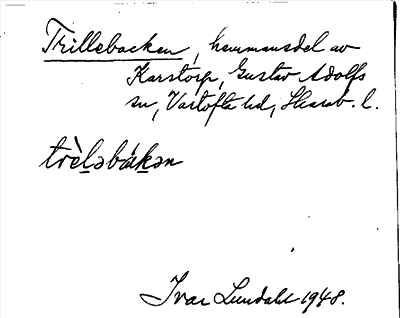 Trillebacken, hemmansdel av
Karstorp, Gustav Adolfs
sn, Vartofta hd, Skarab. l.
trèləbákən
Ivar Lundahl 1948.